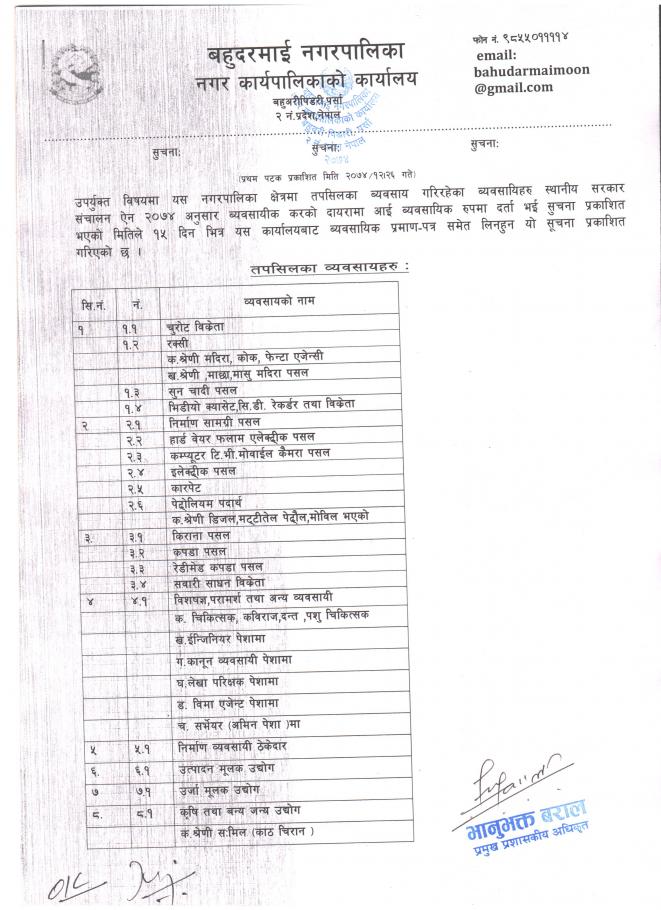 बहुदरमाई नगरपालिका
नगर कार्यपालिकाको कार्यालय
बहुअरीपिडरी,पर्सा
२ नं.प्रदेश,नेपाल
फोन नं. ९८५५०११११४
email:
bahudarmaimoon
@gmail.com
सुचना: सुचना: सुचना:
२०७४
(प्रथम पटक प्रकाशित मिति २०७४/१२/२६ गते)
उपर्युक्त विषयमा यस नगरपालिका क्षेत्रमा तपसिलका व्यवसाय गरिरहेका व्यवसायिहरु स्थानीय सरकार
संचालन ऐन २०७४ अनुसार व्यवसायीक करको दायरामा आई व्यवसायिक रुपमा दर्ता भई सुचना प्रकाशित
भएको मितिले १५ दिन भित्र यस कार्यालयबाट व्यवसायिक प्रमाण-पत्र समेत लिनहुन यो सूचना प्रकाशित
गरिएको छ ।
तपसिलका व्यवसायहरु :
सि.नं. नं. व्यवसायको नाम
१ १.१ चुरोट विक्रेता
१.२ रक्सी
क.श्रेणी मदिरा, कोक, फेन्टा एजेन्सी
ख.श्रेणी ,माछा,मासु मदिरा पसल
१.३ सुन चादी पसल
१.४ भिडीयो क्यासेट,सि.डी. रेकर्डर तथा विक्रेता
२ २.१ निर्माण सामग्री पसल
२.२ हार्ड वेयर फलाम एलेक्ट्रीक पसल
२.३ कम्प्यूटर टि.भी.मोवाईल कैमरा पसल
२.४ इलेक्ट्रीक पसल
२.५ कारपेट
२.६ पेट्रोलियम पदार्थ
क.श्रेणी डिजल,मट्टीतेल पेट्रौल,मोविल भएको
३. ३.१ किराना पसल
३.२ कपडा पसल
३.३ रेडीमेड कपडा पसल
३.४ सवारी साधन विकेता
४ ४.१ विशषज्ञ,परामर्श तथा अन्य व्यवसायी
क. चिकित्सक, कविराज,दन्त ,पशु चिकित्सक
ख.ईन्जिनियर पेशामा
ग.कानून व्यवसायी पेशामा
घ.लेखा परिक्षक पेशामा
ड. विमा एजेन्ट पेशामा
च. सर्भेयर (अमिन पेशा )मा
५ ५.१ निर्माण व्यवसायी ठेकेदार
६. ६.१ उत्पादन मूलक उद्योग
७ ७.१ उर्जा मूलक उद्योग
८. ८.१ कृषि तथा वन्य जन्य उद्योग
क.श्रेणी स.मिल (काठ चिरान )
भानुभक्त बराल
प्रमुख प्रशासकीय अधिकृत